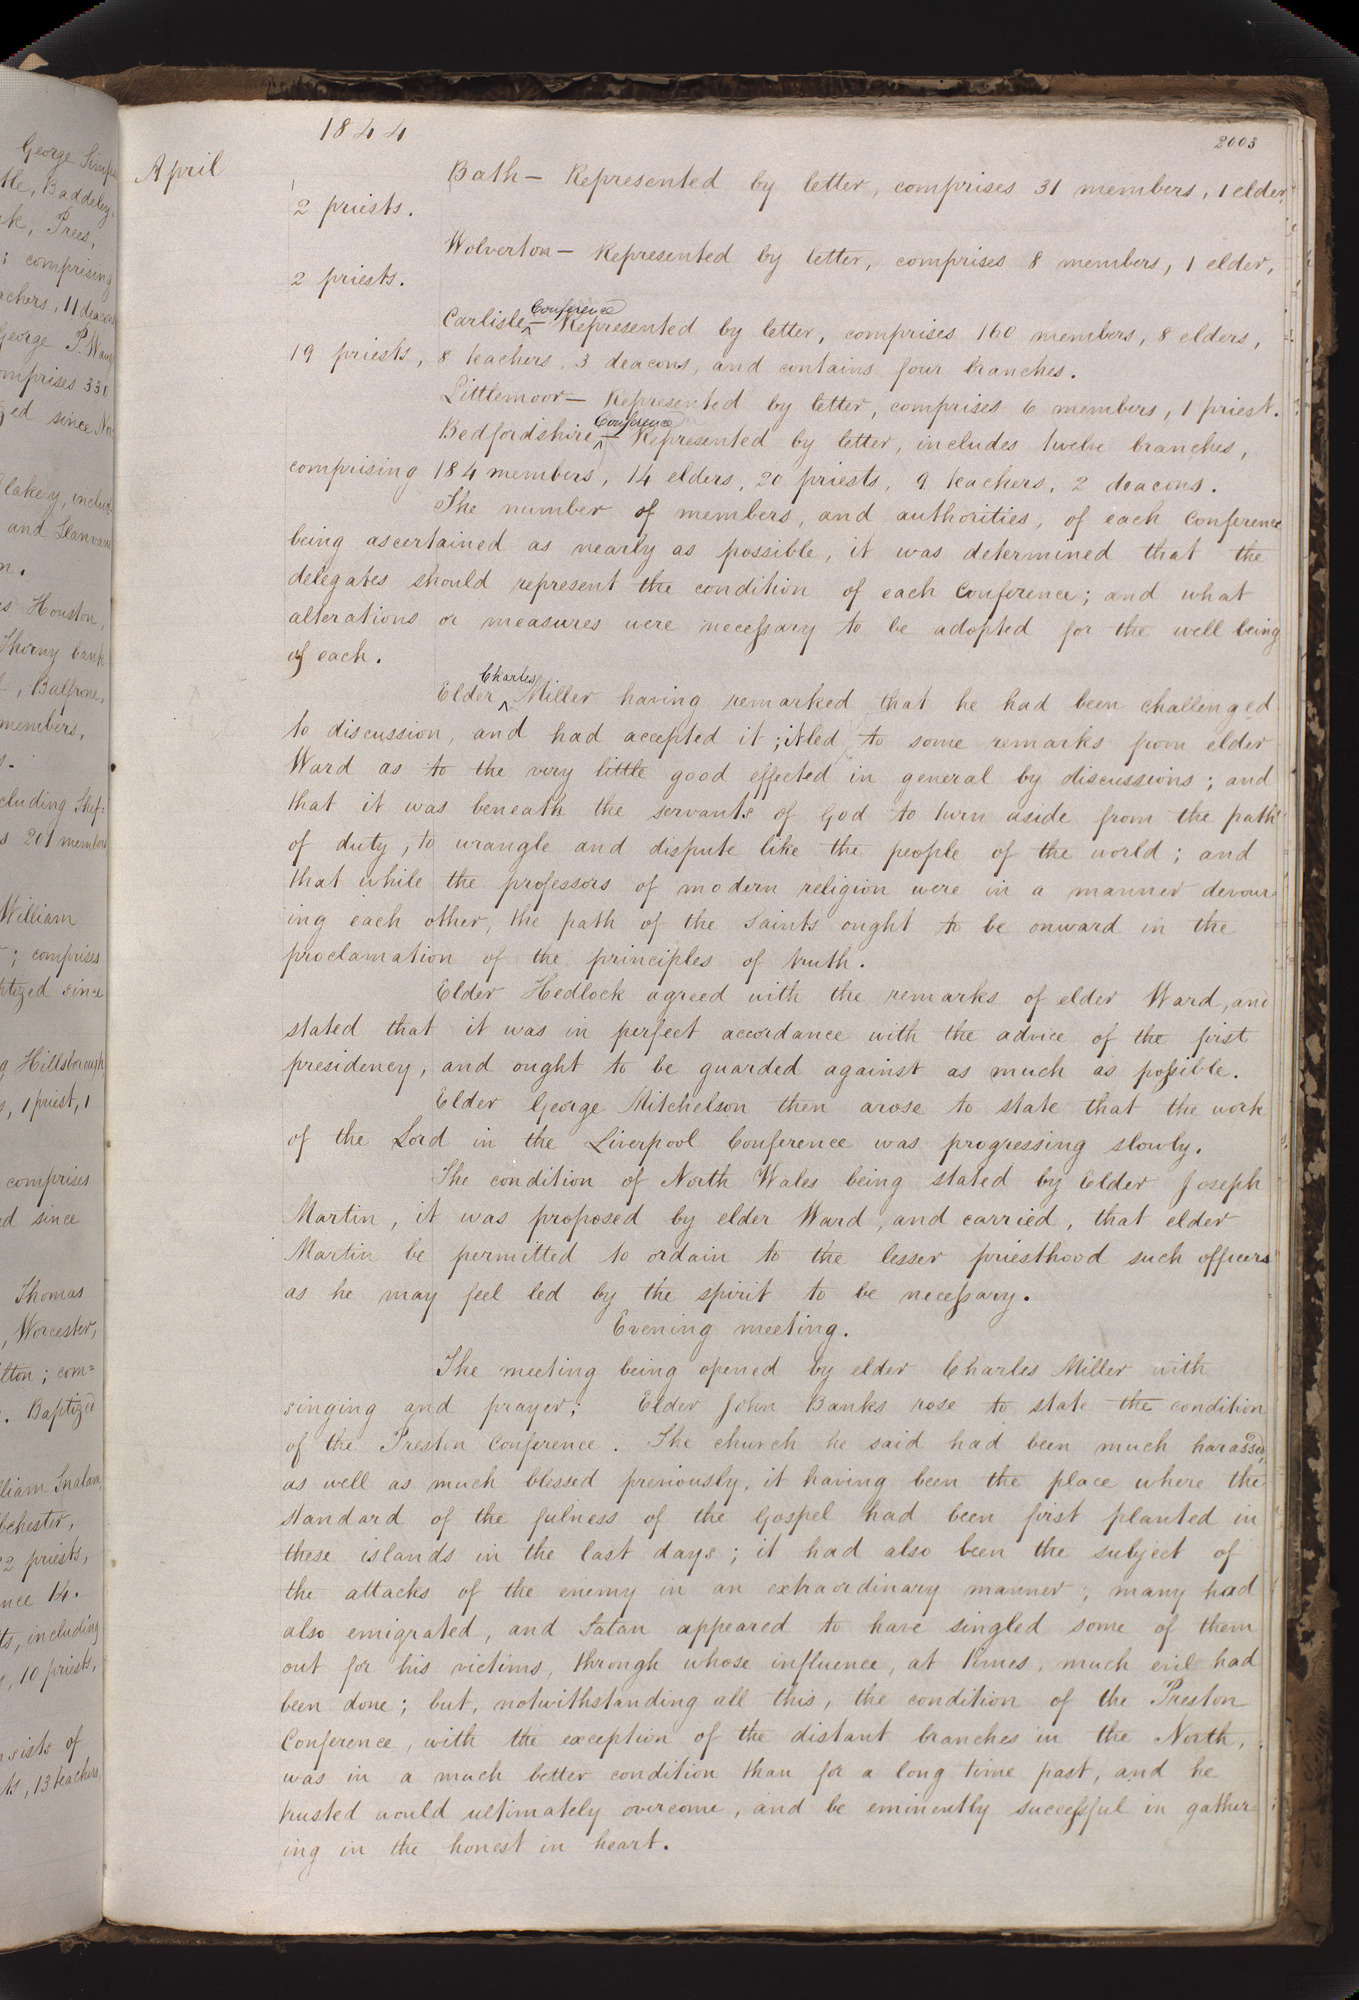 George Simp
tle, Baddeley,
ck, Prees,
; comprising
achers, 11 deacons
George P. Wau
omprises 330
zed since No
lakey, includ
and Llanvan
n.
s Houston,
Thorny bank
, Balfrone,
members,
s.
cluding Shef-
s 201 members
William
; comprises
ptized since
g Hillsborough,
s, 1 priest, 1
comprises
d since
Thomas
, Worcester,
lton; com=
. Baptized
lliam Snalam,
bchester,
22 priests,
nce 14.
ts, including
s, 10 priests,
nsists of
ts, 13 teachers,
1844
2003
April
Bath — Represented by letter, comprises 31 members, 1 elder,
2 priests.
Wolverton — Represented by letter, comprises 8 members, 1 elder,
2 priests.
Carlisle ^Conference — Represented by letter, comprises 160 members, 8 elders,
19 priests, 8 teachers, 3 deacons, and contains four branches.
Littlemoor — Represented by letter, comprises 6 members, 1 priest.
Bedfordshire ^Conference — Represented by letter, includes twelve branches,
comprising 184 members, 14 elders, 20 priests, 9 teachers, 2 deacons.
The number of members, and authorities, of each Conference
being ascertained as nearly as possible, it was determined that the
delegates should represent the condition of each Conference; and what
alterations or measures were necessary to be adopted for the well being
of each.
Elder ^Charles Miller having remarked that he had been challenged
to discussion, and had accepted it; it led to some remarks from elder
Ward as to the very little good effected in general by discussions; and
that it was beneath the servants of God to turn aside from the path
of duty, to wrangle and dispute like the people of the world; and
that while the professors of modern religion were in a manner devour-
ing each other, the path of the saints ought to be onward in the
proclamation of the principles of truth.
Elder Hedlock agreed with the remarks of elder Ward, and
stated that it was in perfect accordance with the advice of the first
presidency, and ought to be guarded against as much as possible.
Elder George Mitchelson then arose to state that the work
of the Lord in the Liverpool Conference was progressing slowly.
The condition of North Wales being stated by Elder Joseph
Martin, it was proposed by elder Ward, and carried, that elder
Martin be permitted to ordain to the lesser priesthood such officers
as he may feel led by the spirit to be necessary.
Evening meeting.
The meeting being opened by elder Charles Miller with
singing and prayer; Elder John Banks rose to state the condition
of the Preston Conference. The church he said had been much harassed,
as well as much blessed previously, it having been the place where the
standard of the fulness of the Gospel had been first planted in
these islands in the last days; it had also been the subject of
the attacks of the enemy in an extraordinary manner; many had
also emigrated, and Satan appeared to have singled some of them
out for his victims, through whose influence, at times, much evil had
been done; but, notwithstanding all this, the condition of the Preston
Conference, with the exception of the distant branches in the North,
was in a much better condition than for a long time past, and he
trusted would ultimately overcome, and be eminently successful in gather-
ing in the honest in heart.